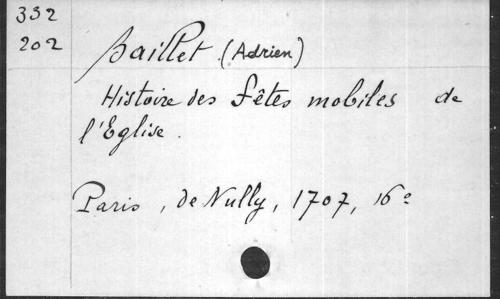 332
202
Baillet (Adrien)
Histoire des fêtes mobiles de
l'Eglise.
Paris, de Nully, 1707, 16º